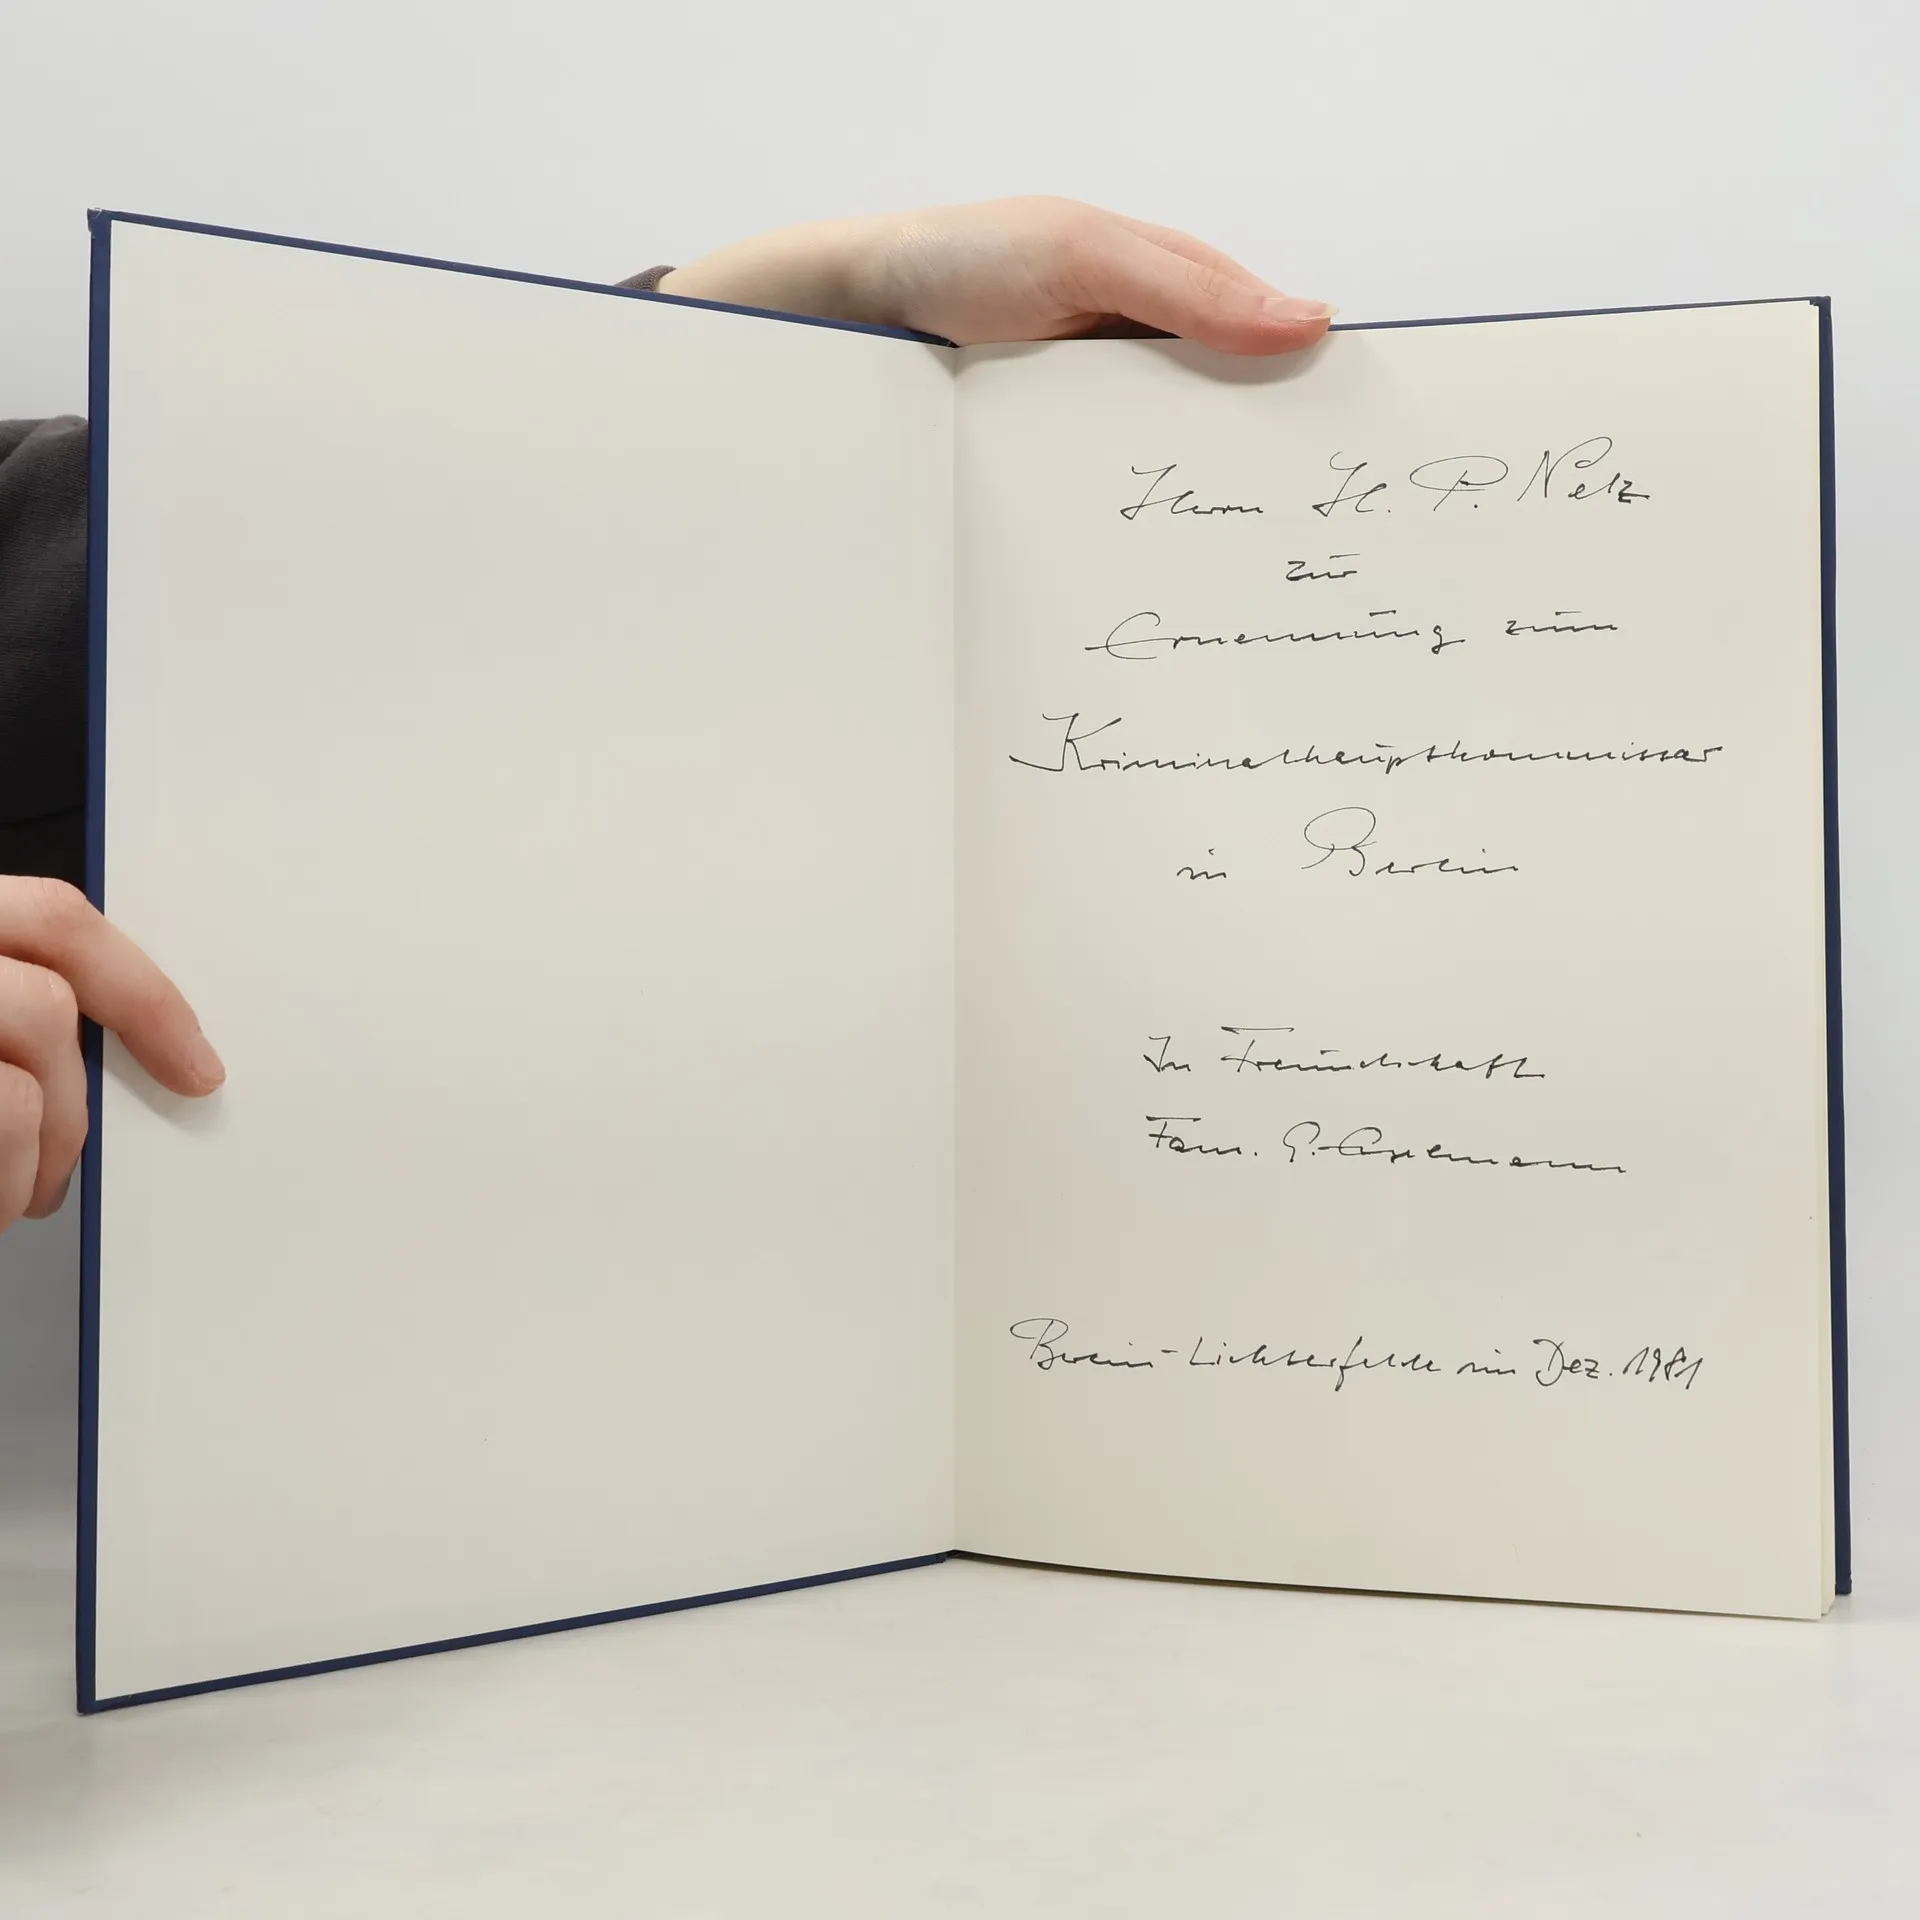 Herrn H. P. Netz
zur
Ernennung zum
Kriminalhauptkommissar
in Berlin
In Freundschaft
Fam. G.
Berlin-Lichterfelde im Dez. 1981